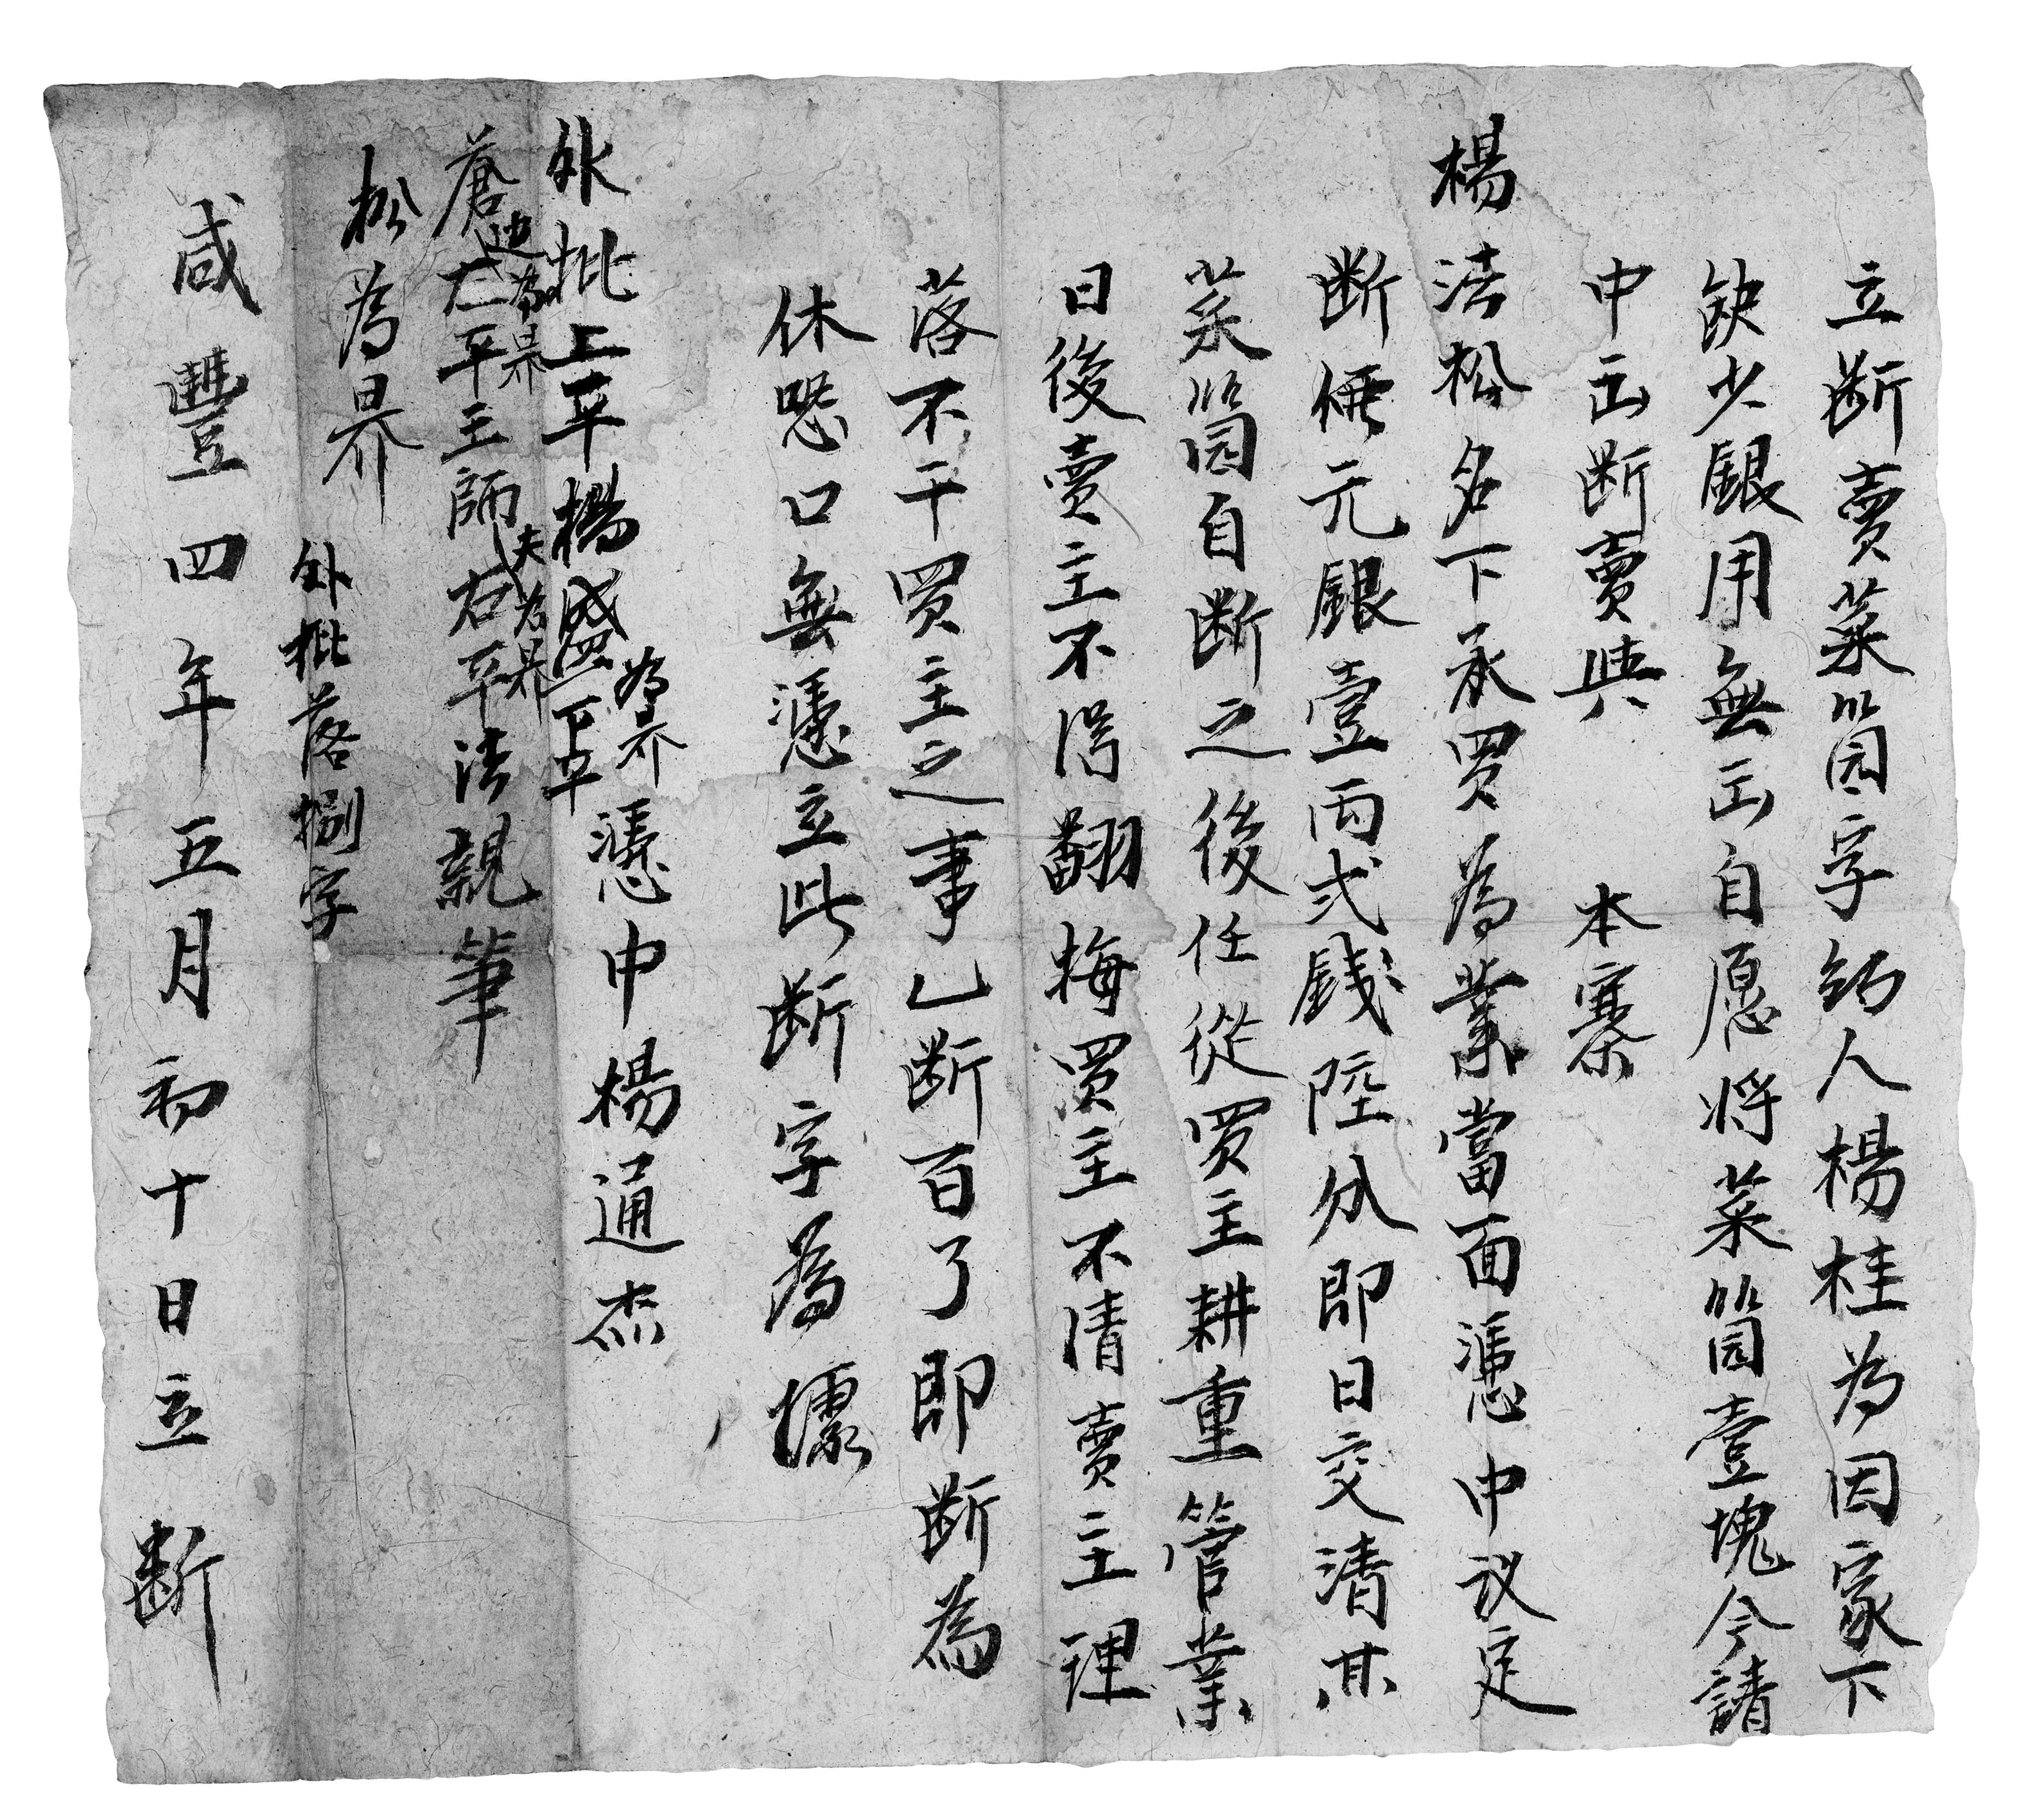 立断賣菜箇字約人楊桂為因家下
缺少銀用無出自愿将菜箇壹塊今請
中出断賣與 本寨
楊法松名下承買為業當面憑中议定
断價元銀壹両弍錢陸分即日交清其
菜箇自断之後任從買主耕重管業
日後賣主不淂翻悔買主不清賣主理
落不干買主之事乚断百了即断為
休恐口無憑立此断字為㨿
憑中楊通杰
外批上平楊盛為界下平
蒼边為界左平王師夫為界右平法 親筆
松為界
外批落捌字
咸豐四年五月初十日立断